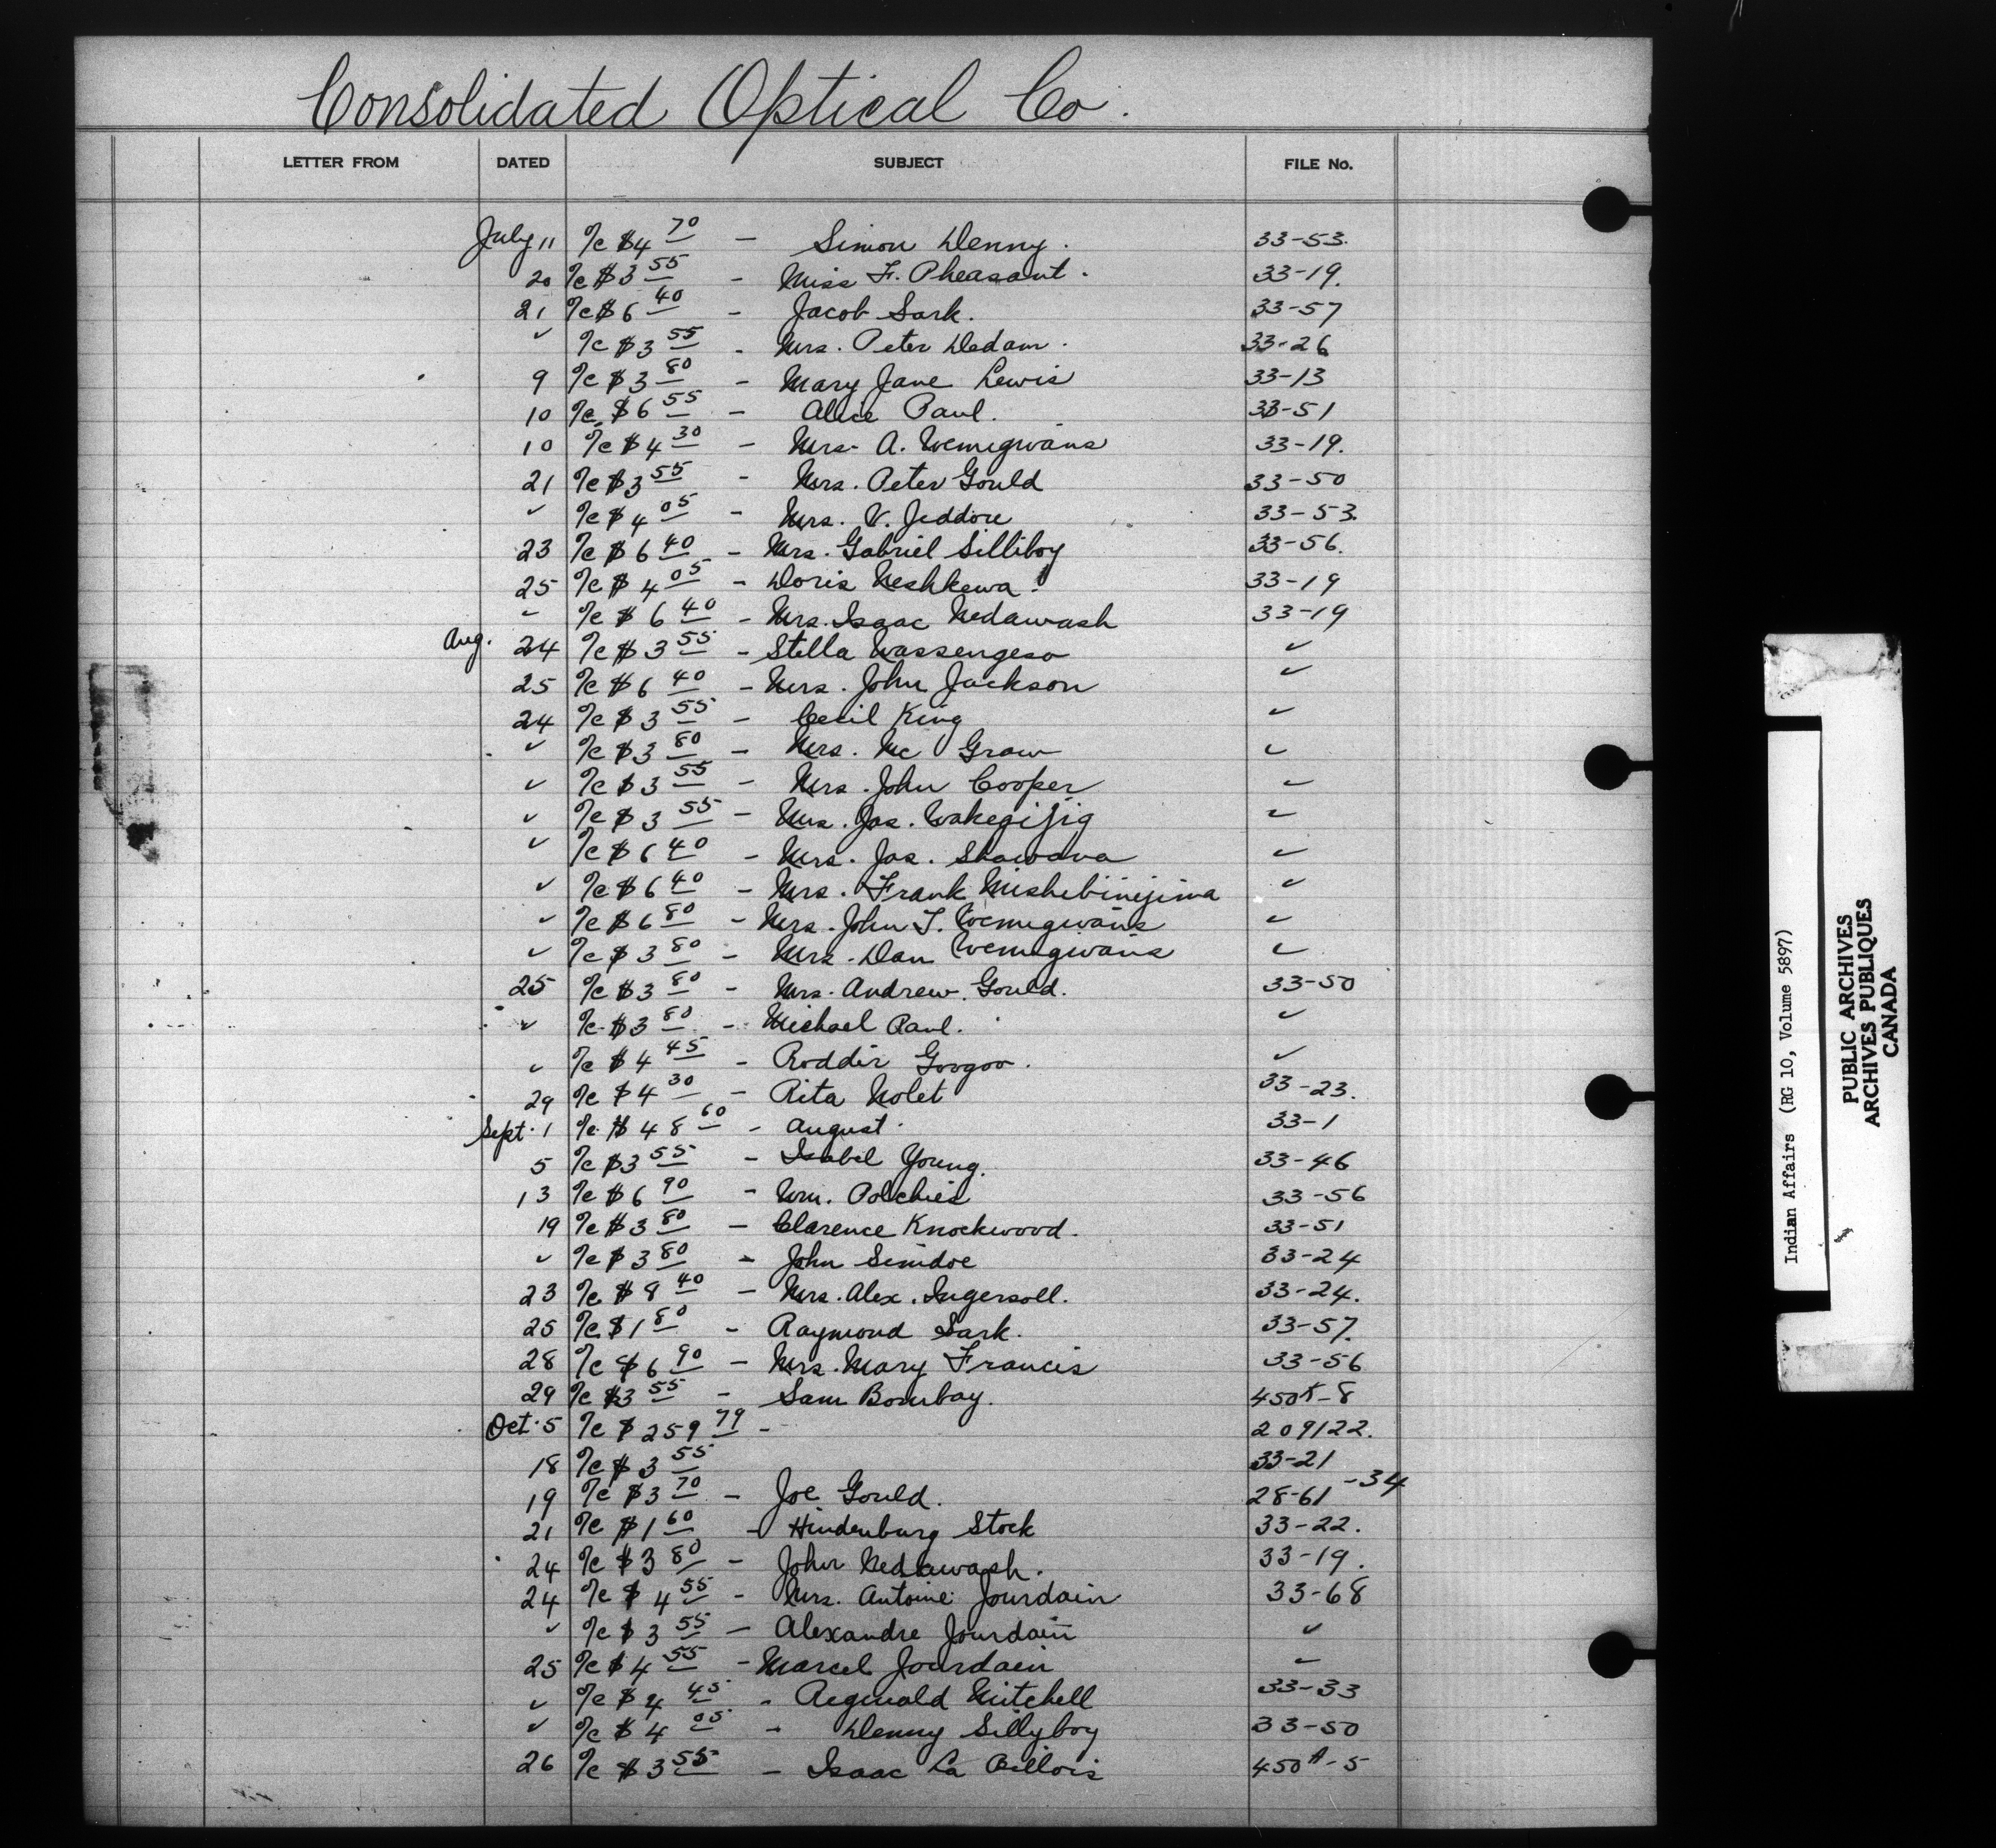 Consolidated Optical Co.
LETTER FROM DATED SUBJECT FILE No.
July 11 %c $4 70 - Simon Denny. 33-53.
20 %c $3 55 - Miss F. Pheasant. 33-19.
21 %c $6 40 - Jacob Sark. 33-57
✓ %c $3 55 - Mrs. Peter Dedam. 33-26
9 %c $3 80 - Mary Jane Lewis 33-13
10 %c $6 55 - Alice Paul. 33-51
10 %c $4 30 - Mrs. A. Wemigwans 33-19.
21 %c $3 55 - Mrs. Peter Gould 33-50
✓ %c $4 05 - Mrs. V. Jeddore 33-53.
23 %c $6 40 - Mrs. Gabriel Silliboy 33-56.
25 %c $4 05 - Doris Neshkewa. 33-19
✓ %c $6 40 - Mrs. Isaac Nedawash 33-19
Aug. 24 %c $3 55 - Stella Wassengeso ✓
25 %c $6 40 - Mrs. John Jackson ✓
24 %c $3 55 - Cecil King ✓
✓ %c $3 80 - Mrs. Mc Graw ✓
✓ %c $3 55 - Mrs. John Cooper ✓
✓ %c $3 55 - Mrs. Jas. Wakegijig ✓
✓ %c $6 40 - Mrs. Jas. Shawana ✓
✓ %c $6 40 - Mrs. Frank Mishibinijima ✓
✓ %c $6 80 - Mrs. John T. Wemigwans ✓
✓ %c $3 80 - Mrs. Dan Wemigwans ✓
25 %c $3 80 - Mrs. Andrew Gould. 33-50
✓ %c $3 80 - Michael Paul. ✓
✓ %c $4 45 - Roddie Googoo. ✓
29 %c $4 30 - Rita Nolet 33-23.
Sept. 1 %c $48 60 - August. 33-1
5 %c $3 55 - Isabel Young. 33-46
13 %c $6 90 - Wm. Polchies 33-56
19 %c $3 80 - Clarence Knockwood. 33-51
✓ %c $3 80 - John Simdoe 33-24
23 %c $8 40 - Mrs. Alex. Ingersoll. 33-24.
25 %c $1 80 - Raymond Sark. 33-57.
28 %c $6 90 - Mrs. Mary Francis 33-56
29 %c $3 55 - Sam Bombay. 450X-8
Oct. 5 %c $259 79 - 209122.
18 %c $3 55 33-21
19 %c $3 70 - Joe Gould. 28-61-34
21 %c $1 60 - Hindenburg Stock 33-22.
24 %c $3 80 - John Nedawash. 33-19.
24 %c $4 55 - Mrs. Antoine Jourdain 33-68
✓ %c $3 55 - Alexandre Jourdain ✓
25 %c $4 55 - Marcel Jourdain ✓
✓ %c $4 45 - Reginald Mitchell 33-33
✓ %c $4 05 - Denny Sillyboy 33-50
26 %c $3 55 - Isaac La Billois 450A-5
Indian Affairs (RG 10, Volume 5897)
PUBLIC ARCHIVES
ARCHIVES PUBLIQUES
CANADA